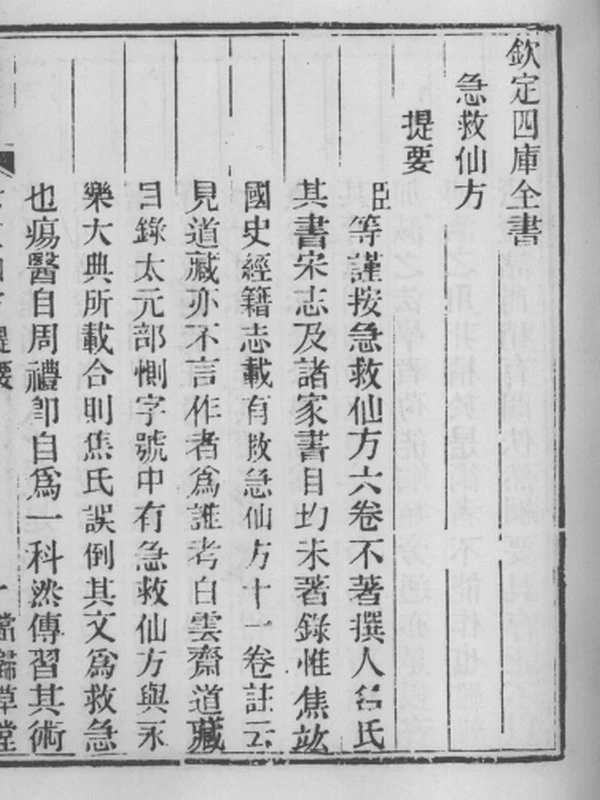 欽定四庫全書
急救仙方
提要
臣等謹按急救仙方六卷不著撰人名氏
其書宋志及諸家書目均未著錄惟焦竑
國史經籍志載有救急仙方十一卷註云
見道藏亦不言作者爲誰考白雲齋道藏
目錄太元部惻字號中有急救仙方與永
樂大典所載合則焦氏誤倒其文爲救急
也瘍醫自周禮卽自爲一科然傳習其術
提要
一
當歸草堂